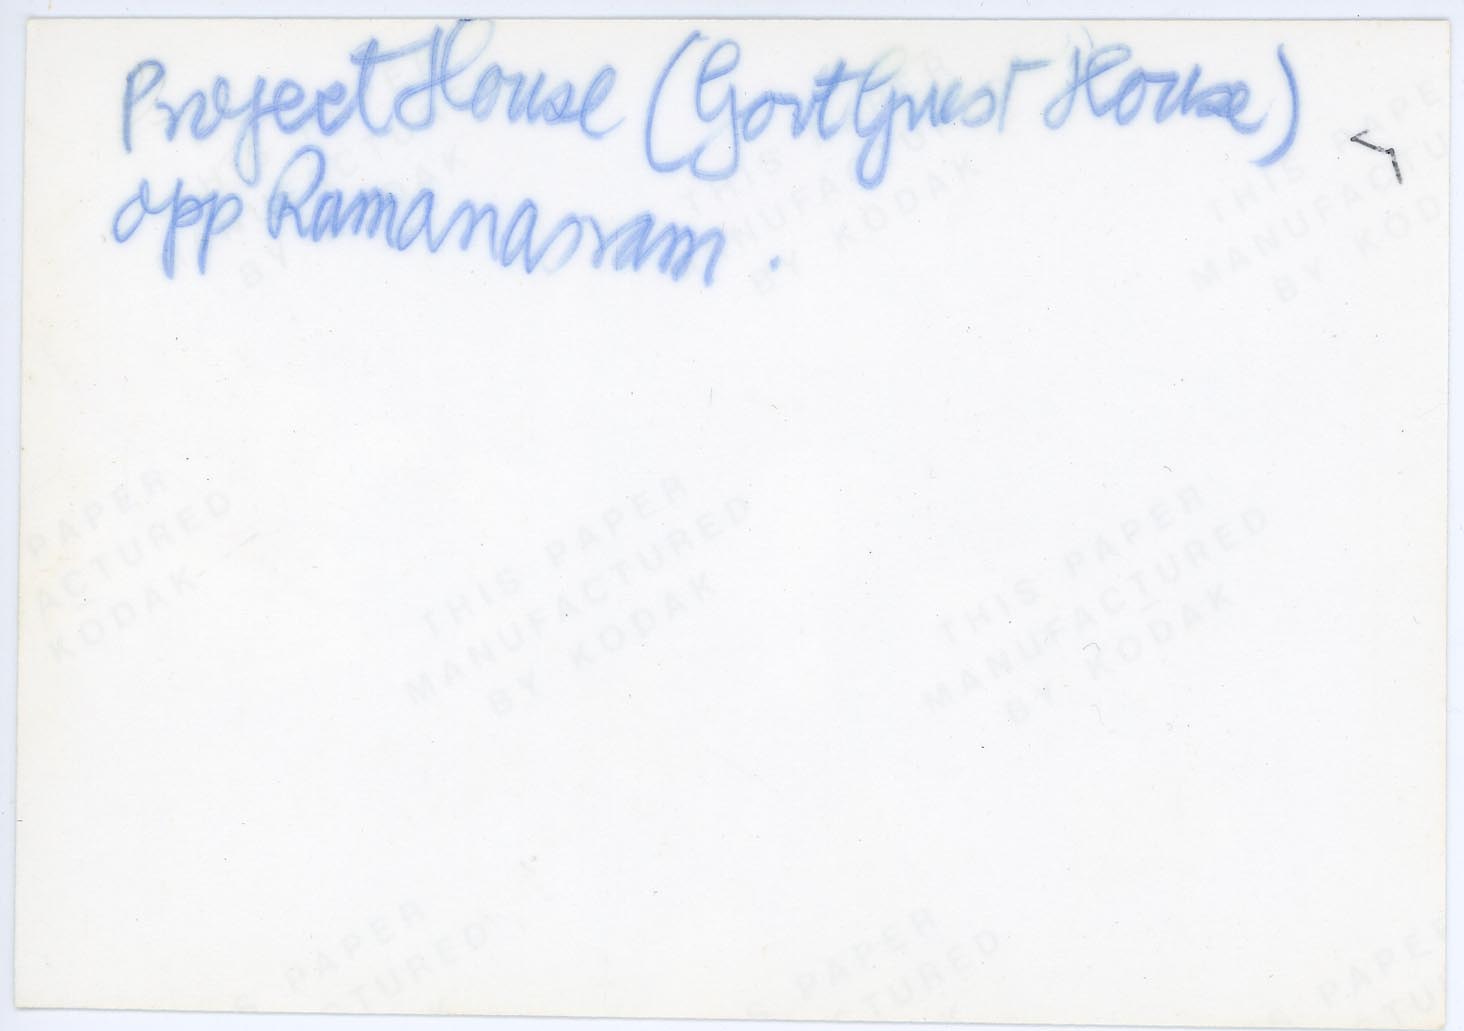 Project House (Govt Guest House)
opp Ramanasram .
THIS PAPER
MANUFACTURED
BY KODAK
THIS PAPER
MANUFACTURED
BY KODAK
THIS PAPER
MANUFACTURED
BY KODAK
PAPER
ACTURED
KODAK
THIS PAPER
MANUFACTURED
BY KODAK
THIS PAPER
MANUFACTURED
BY KODAK
S PAPER
CTURED
PAPER
TURED
PAPER